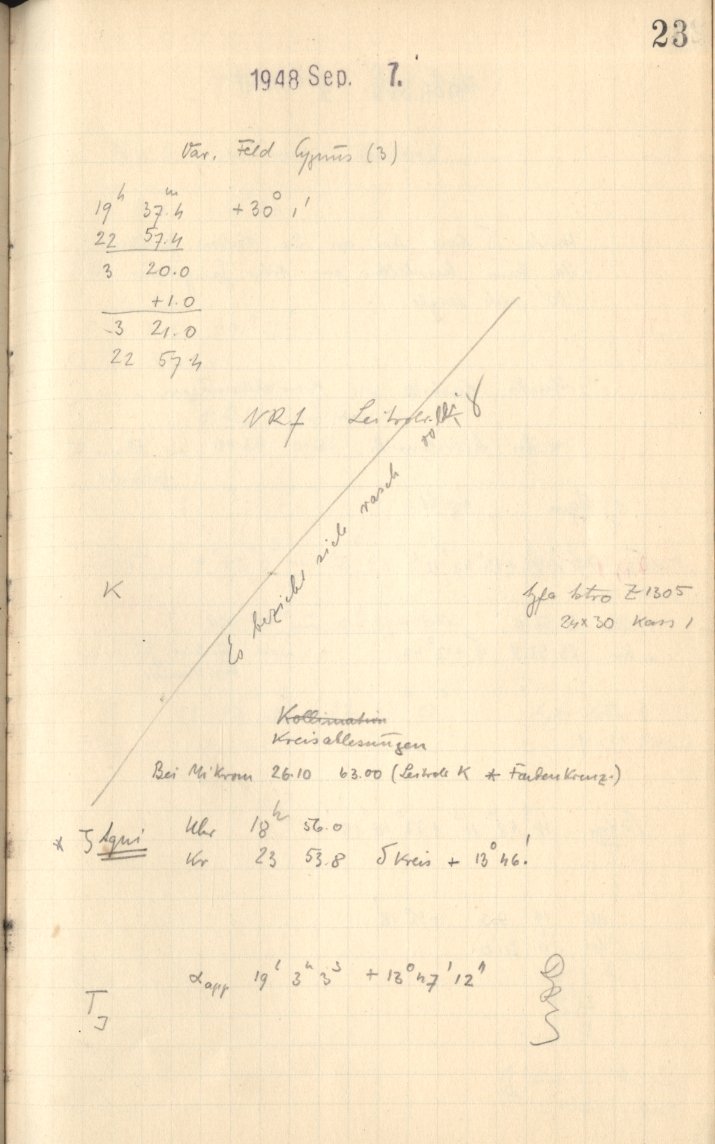 23
1948 Sep. 7.
Var. Feld Cygnus (3)
19h 37m.4 +30° 1'
22 57.4
3 20.0
+1.0
3 21.0
22 57.4
VRf Leitrohr
Es bezieht sich rasch
K
Agfa Astro Z 1305
24x30 Kass 1
Kollimation
Kreisablesungen
Bei Mikrom 26.10 63.00 (Leitrohr K * Fadenkreuz.)
* ζ Aqui Uhr 18h 56.0
Kr 23 53.8 δ Kreis + 13° 46!
αapp 19h 3m 3s + 13° 47' 12"